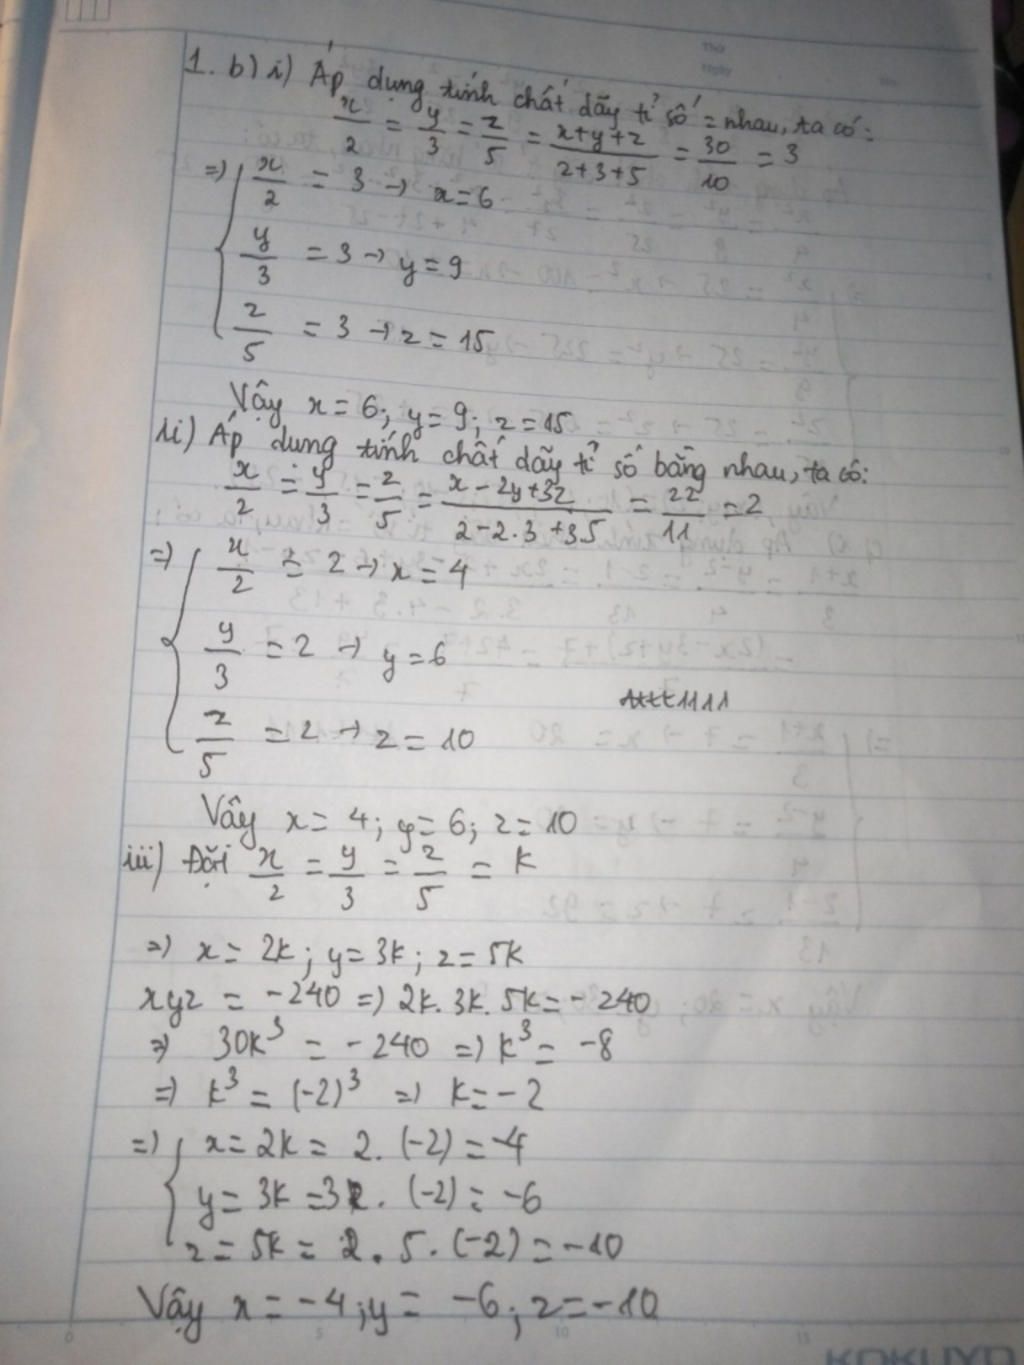 Thứ
Ngày
1. b) i) Áp dụng tính chất dãy tỉ số = nhau, ta có:
x/2 = y/3 = z/5 = (x+y+z)/(2+3+5) = 30/10 = 3
=> { x/2 = 3 → x = 6
y/3 = 3 → y = 9
z/5 = 3 → z = 15
Vậy x = 6; y = 9; z = 15
ii) Áp dung tính chất dãy tỉ số bằng nhau, ta có:
x/2 = y/3 = z/5 = (x - 2y + 3z)/(2 - 2.3 + 3.5) = 22/11 = 2
=> { x/2 = 2 → x = 4
y/3 = 2 → y = 6
z/5 = 2 → z = 10
Vây x = 4; y = 6; z = 10
iii) Đặt x/2 = y/3 = z/5 = k
=> x = 2k; y = 3k; z = 5k
xyz = -240 => 2k. 3k. 5k = -240
=> 30k³ = -240 => k³ = -8
=> k³ = (-2)³ => k = -2
=> { x = 2k = 2. (-2) = -4
y = 3k = 3. (-2) = -6
z = 5k = 2. 5. (-2) = -10
Vậy x = -4; y = -6; z = -10
0 5 10 15
KOKUYO